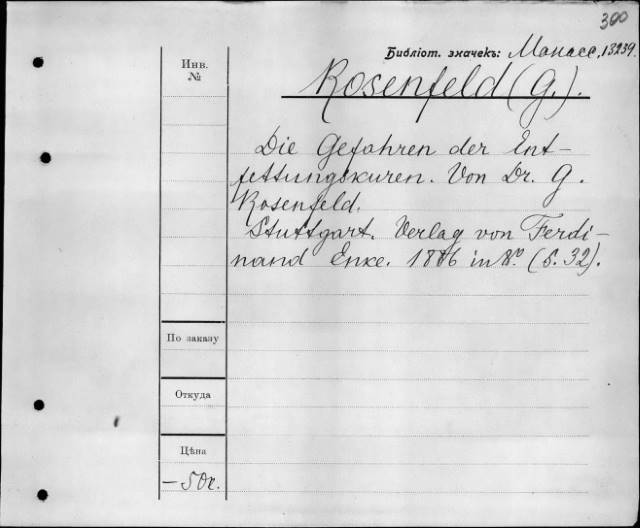 300
Библіот. значекъ: Манасс. 13239.
Инв.
№
Rosenfeld (G.).
Die Gefahren der Ent-
fettungskuren. Von Dr. G.
Rosenfeld.
Stuttgart. Verlag von Ferdi-
nand Enke. 1886 in 8º. (S. 32).
По заказу
Откуда
Цѣна
— 50 к.